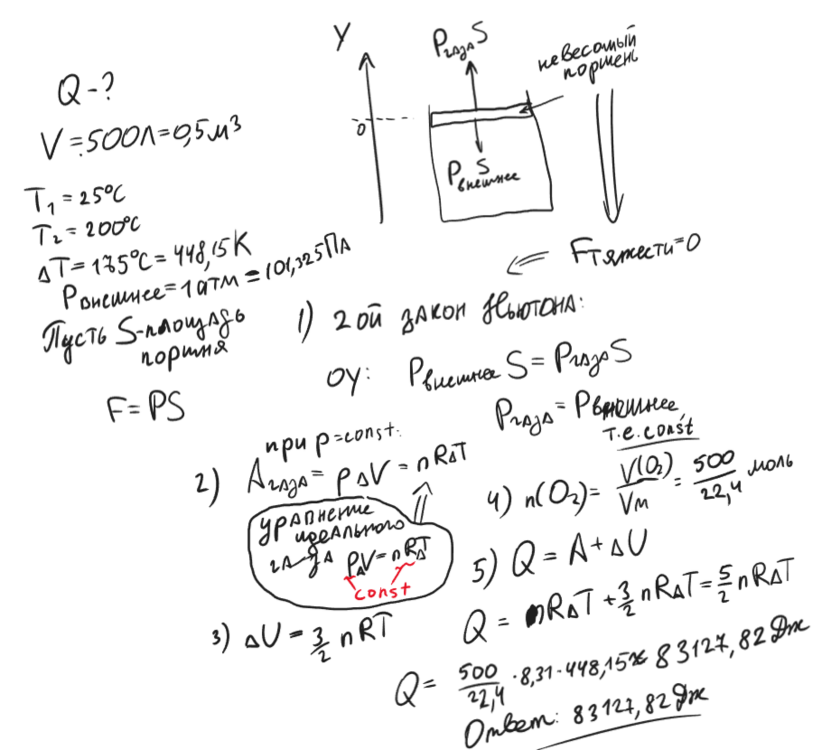 Q-?
V=500л=0,5м³
T₁=25°C
T₂=200°C
ΔT=175°C=448,15K
Pвнешнее=1атм=101,325Па
Пусть S-площадь
поршня
F=PS
Y
0
Pгаза S
Pвнешнее S
невесомый
поршень
Fтяжести=0
1) 2ой закон Ньютона:
OY: Pвнешнее S = Pгаза S
Pгаза = Pвнешнее,
т.е. const
2) при p=const:
Aгаза = pΔV = nRΔT
уравнение
идеального
газа pΔV=nRΔT
const
3) ΔU = 3/2 nRT
4) n(O₂) = V(O₂)/Vм = 500/22,4 моль
5) Q = A + ΔU
Q = nRΔT + 3/2 nRΔT = 5/2 nRΔT
Q = 500/22,4 · 8,31 · 448,15 ≈ 83127,82 Дж
Ответ: 83127,82 Дж